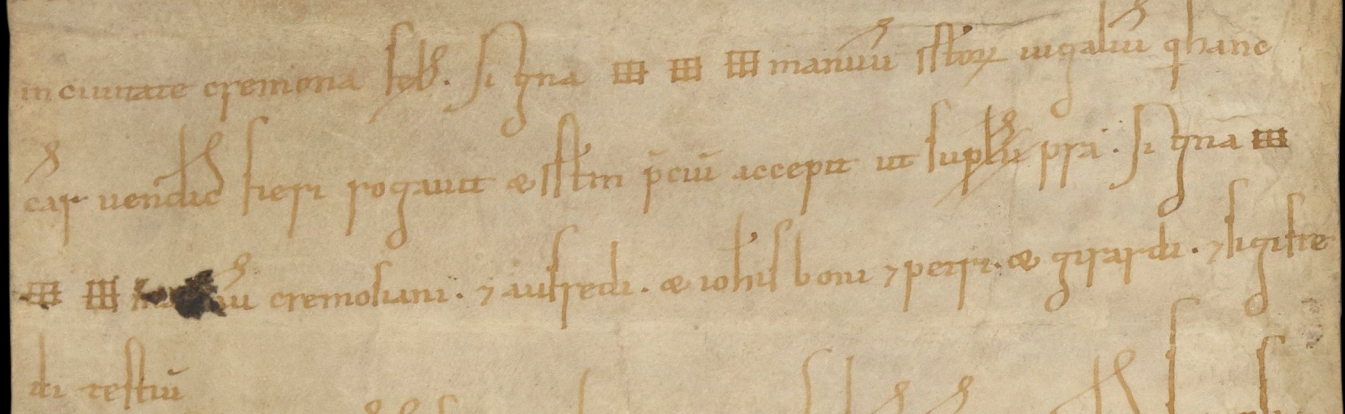 in ciuitate cremona fel̅. Signa ᚎ manuū sstoꝝ iugaliū q hanc
car uendic fieri rogauit & sstm p̅ciū accepit ut sup̅l̅ p̅ra. Signa
manuū cremosiani. ⁊ ausredi. & ioh̅is boni ⁊ petri. & girardi. ⁊ sigifre
di testiū